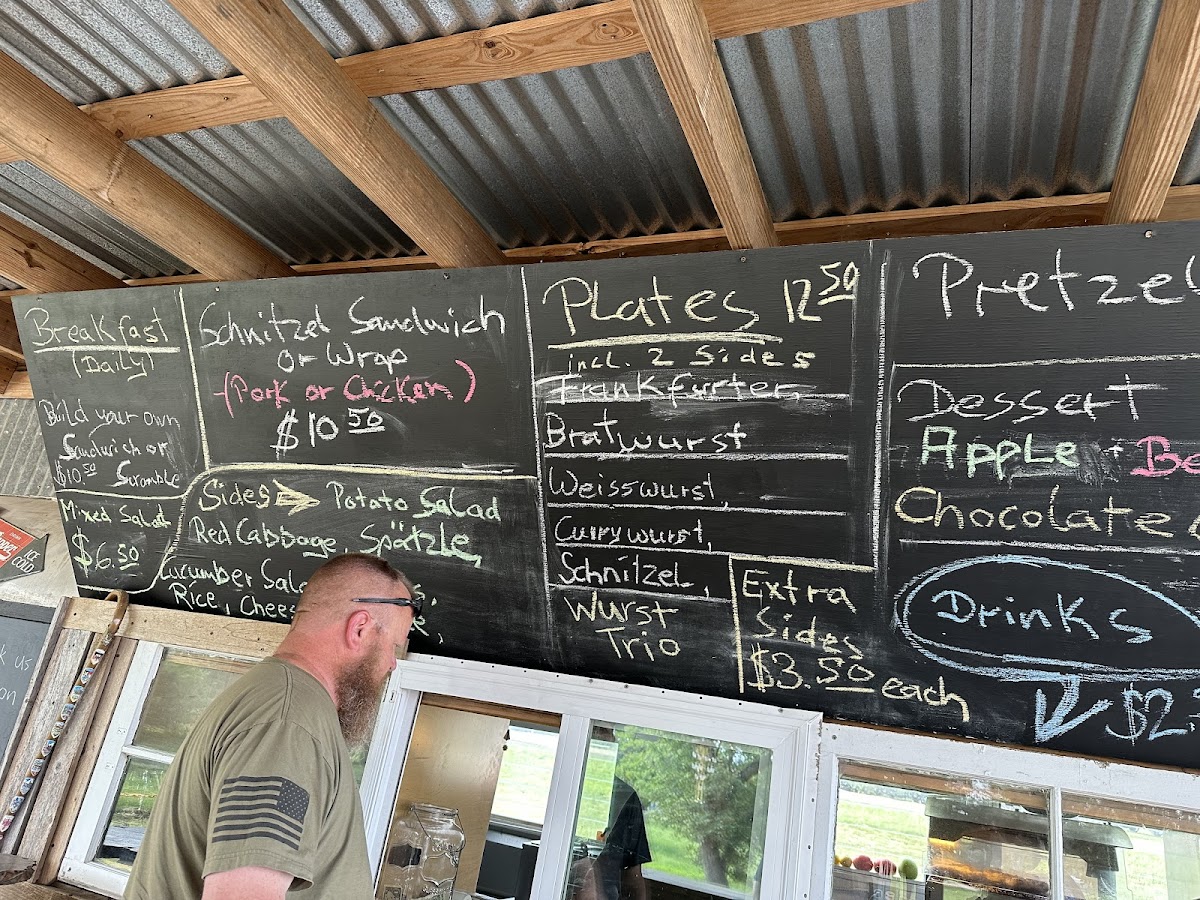 Breakfast
(Daily)
Build your own
Sandwich or
$10.50 Scramble
Mixed Salad
$6.50
Schnitzel Sandwich
or Wrap
(Pork or Chicken)
$10.50
Sides Potato Salad
Red Cabbage Spätzle,
Cucumber
Rice,
Plates 12.50
incl. 2 Sides
Frankfurter,
Bratwurst
Weisswurst,
Currywurst,
Schnitzel,
Wurst
Trio
Extra
Sides
$3.50 each
Pretzel
Dessert
Apple +
Chocolate
Drinks
ICE
COLD